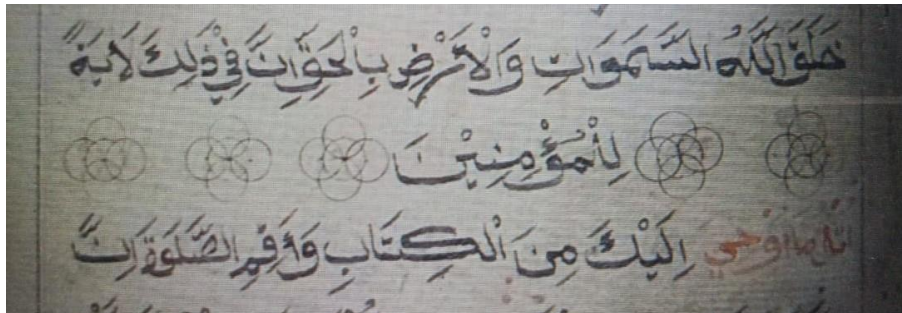 خَلَقَ اللّٰهُ السَّمٰوَاتِ وَالْاَرْضِ بِالْحَقِّ اِنَّ فِيْ ذٰلِكَ لَاٰيَةً
لِلْمُؤْمِنِيْنَ
اُتْلُ مَا اُوْحِيَ اِلَيْكَ مِنَ الْكِتَابِ وَاَقِمِ الصَّلٰوةَ اِنَّ